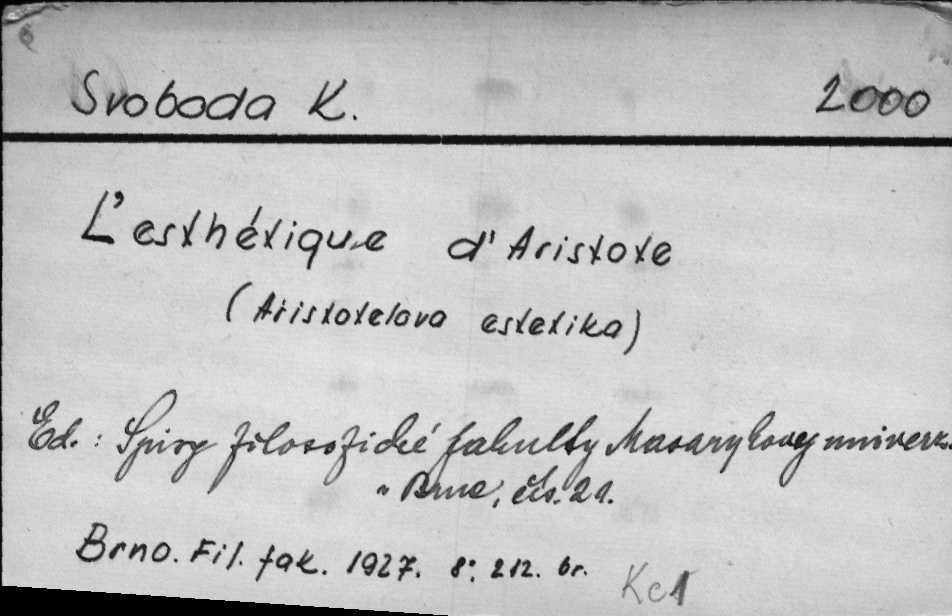 Svoboda K. 2000
L'esthétique d'Aristote
(Aristotelova estetika)
Ed.: Spisy filosofické fakulty Masarykovy univers.
v Brne, čís. 21.
Brno. Fil. fak. 1927. 8°. 212. br.
Kc1